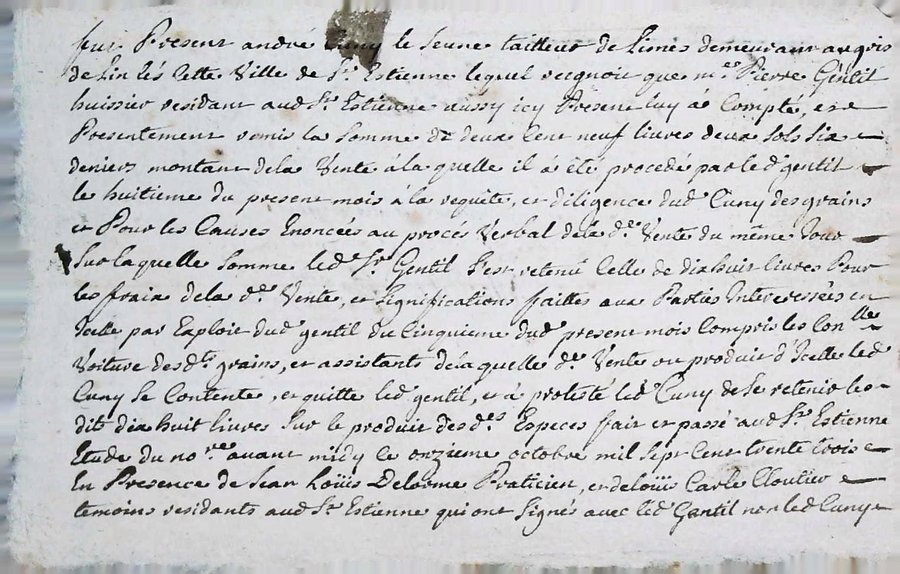 fut Present andré Cuny le Jeune tailleur de Limes demeurant au gris
de lin lés Cette Ville de St. Estienne lequel recgnoit que me. Pierre Gentil
huissier residant aud St. Estienne aussy icy Present luy à Compté, et
Presentement remis la Somme de deux Cent neuf livres deux Sols Six
deniers montant dela Vente àla quelle il à été procedé par led gentil
le huitieme du present mois àla requete, et diligence dud Cuny des grains
et Pour les Causes Enoncées au procés Verbal dela de. Vente du même Jour
Sur laquelle Somme led Sr. Gentil S'est retenu Celle de dix huit livres Pour
les fraix dela de. Vente, et Significations faittes aux Parties Interessées en
Icelle par Exploit dud gentil du Cinquieme dud present mois Compris les Con.lles
Voiture desd.ts grains, et assistants delaquelle de. Vente ou produit d'Icelle led
Cuny Se Contente, et quitte led gentil, et à protesté led Cuny de Se retenir les
dits dix huit livres Sur le produit desdes Especes fait et passé aud St. Estienne
Etude du no.re avant midy ce onzieme octobre mil Sept Cent trente trois
En Presence de Jean Loüis Delorme Praticien, et deloüis Carle Cloutier
temoins residants aud St. Estienne qui ont Signés avec led Gentil non led Cuny